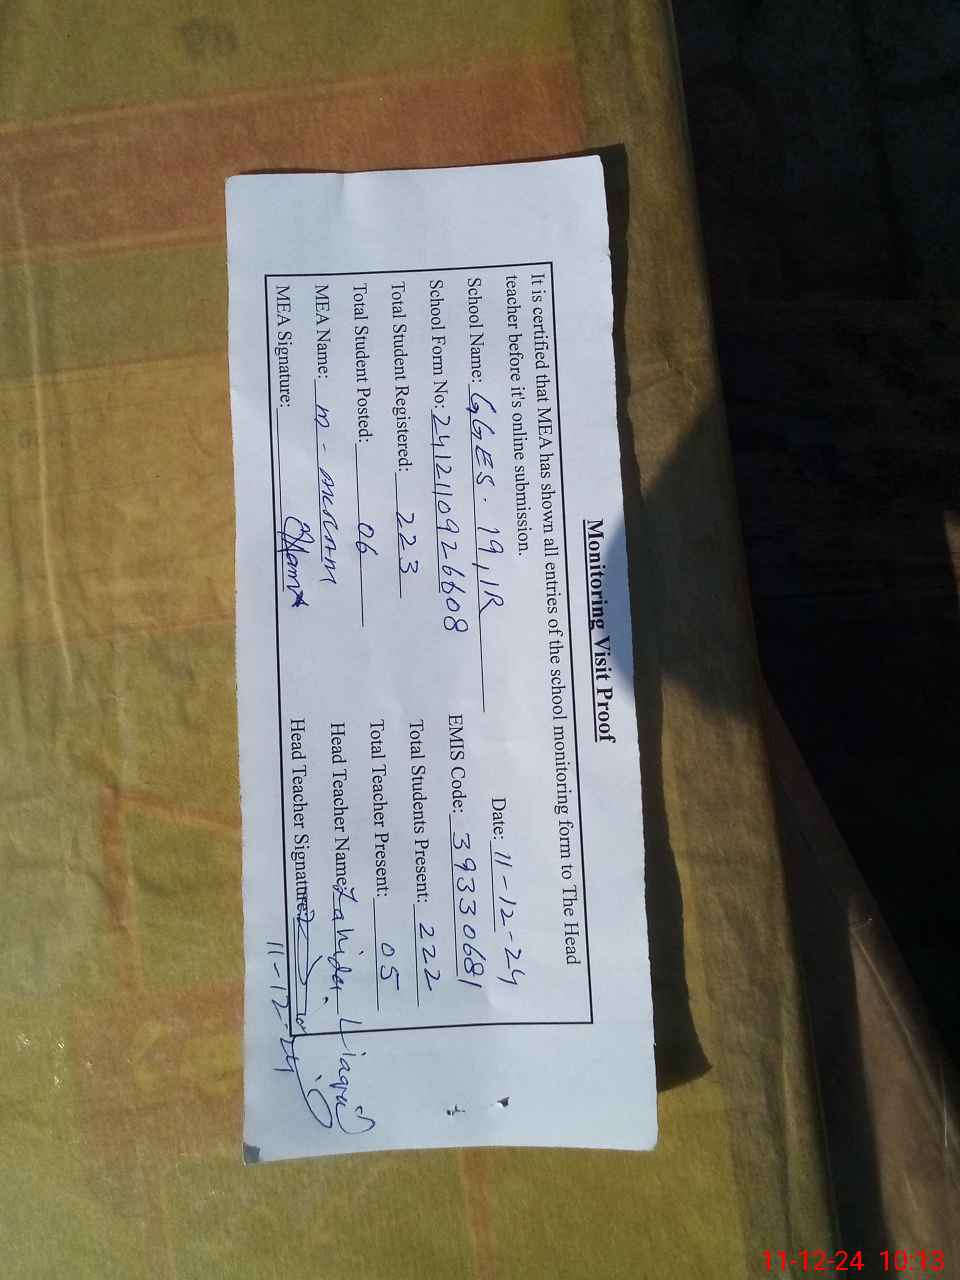 Monitoring Visit Proof
It is certified that MEA has shown all entries of the school monitoring form to The Head
teacher before it's online submission.
Date: 11-12-24
School Name: GGES. 19,1R
EMIS Code: 39330681
School Form No: 2412110926608
Total Students Present: 222
Total Student Registered: 223
Total Teacher Present: 05
Total Student Posted: 06
Head Teacher Name: Zahida Liaquat
MEA Name: M-
MEA Signature:
Head Teacher Signature:
11-12-24
11-12-24 10:13